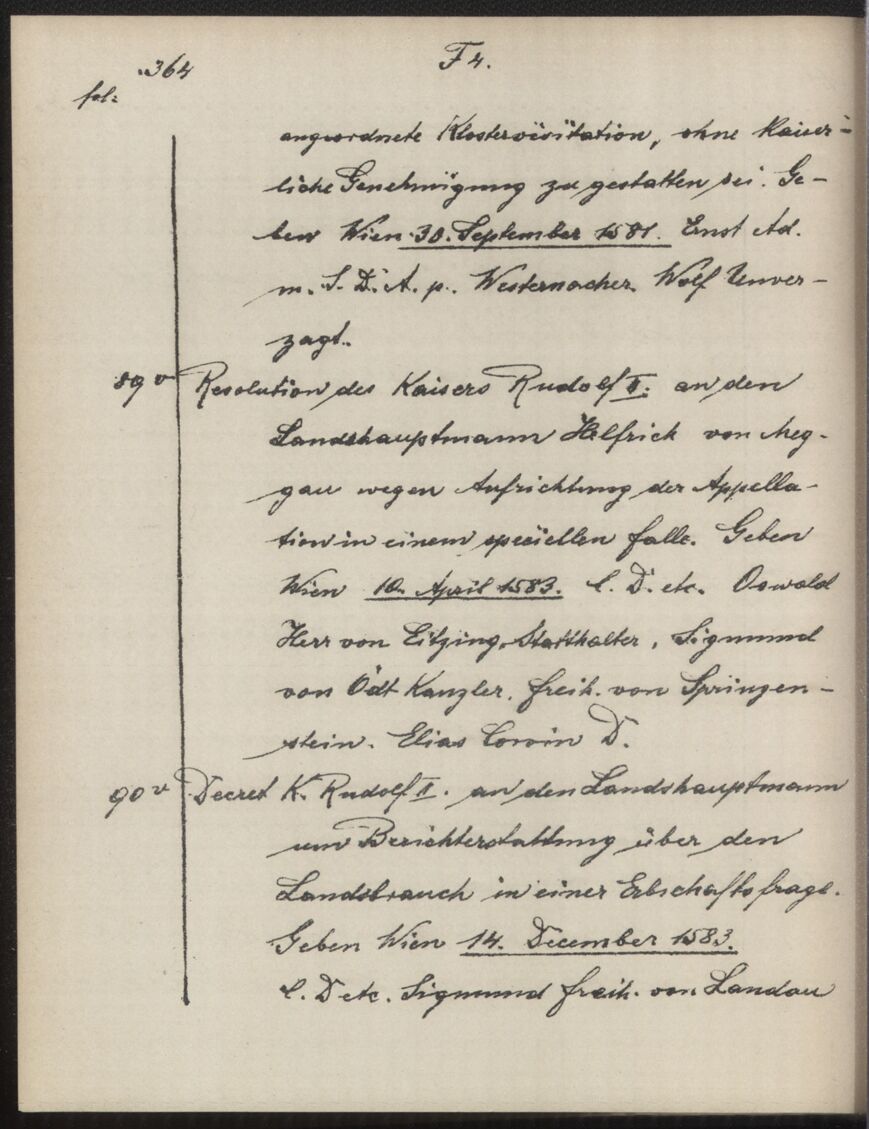 364 F 4.
fol:
angeordnete Klostervisitation, ohne Kaiser-
liche Genehmigung zu gestatten sei. Ge-
ben Wien 30. September 1581. Ernst Ad.
m. S. D. A. p. Westernacher. Wolf Unver-
zagt.
89 v Resolution des Kaisers Rudolf II. an den
Landshauptmann Helfrich von Meg-
gau wegen Aufrichtung der Appella-
tion in einem speciellen falle. Geben
Wien 10. April 1583. C. D. etc. Oswald
Herr von Eitzing, Statthalter, Sigmund
von Ödt Kanzler, freih. von Springen-
stein. Elias Corvin D.
90 v Decret K. Rudolf II. an den Landshauptmann
um Berichterstattung über den
Landsbrauch in einer Erbschaftsfrage.
Geben Wien 14. December 1583.
C. D etc. Sigmund freih. von Landau